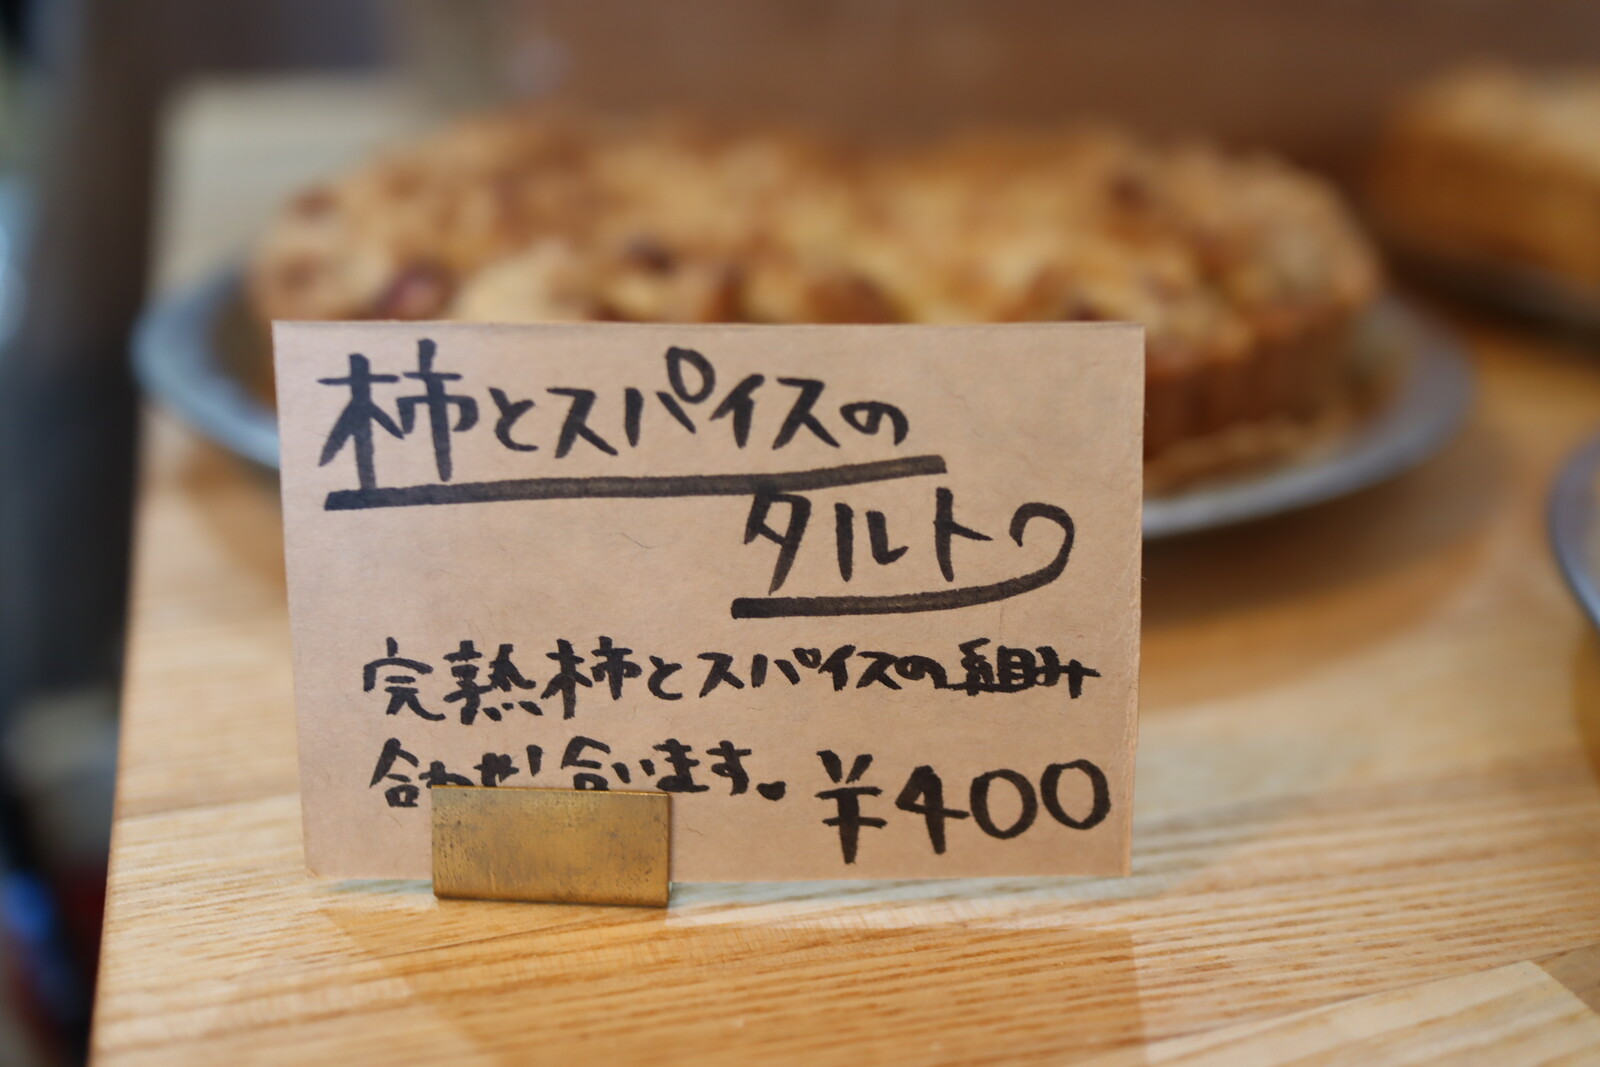 柿とスパイスの
タルト
完熟柿とスパイスの組み
合わせ!合います。
¥400